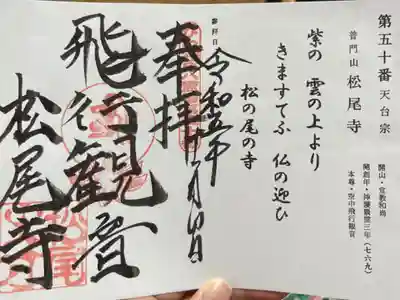 第五十番 天台宗
普門山 松尾寺
開山・宣教和尚
開創年・神護景雲三年（七六九）
本尊・空中飛行観音
紫の 雲の上より
きますてふ 仏の迎ひ
松の尾の寺
参拝日
令和五年
奉拝
飛行観音
松尾寺